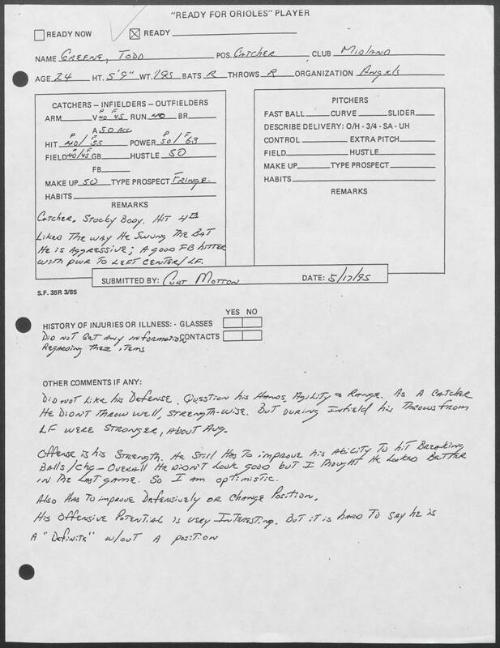 "READY FOR ORIOLES" PLAYER
READY NOW READY
NAME Greene, Todd POS. Catcher CLUB Midland
AGE 24 HT. 5'9" WT. 195 BATS R THROWS R ORGANIZATION Angels
CATCHERS – INFIELDERS – OUTFIELDERS
ARM V 40 45 RUN 40 BR
A 50 ACC
HIT 40/55 POWER 50/63
FIELD 40/45 GB HUSTLE 50
FB
MAKE UP 50 TYPE PROSPECT Fringe
HABITS
REMARKS
Catcher, Stocky Body. Hit 4th
Liked The way He Swung The Bat
He is Aggressive; A good FB hitter
with pwr To Left Center/LF.
PITCHERS
FAST BALL CURVE SLIDER
DESCRIBE DELIVERY: O/H - 3/4 - SA - UH
CONTROL EXTRA PITCH
FIELD HUSTLE
MAKE UP TYPE PROSPECT
HABITS
REMARKS
SUBMITTED BY: Curt Motton DATE: 5/17/95
S.F. 35R 3/85
YES NO
HISTORY OF INJURIES OR ILLNESS: - GLASSES
CONTACTS
Did not Get Any information
Regarding these items
OTHER COMMENTS IF ANY:
Did not Like his Defense. Question his Hands, Agility & Range. As A Catcher
He Didn't Throw well, strength-wise. But during Infield his Throws from
LF were Stronger, About Avg.
Offense is his Strength. He Still Has To improve his Ability To hit Breaking
Balls/Chg – Overall He Didn't Look good but I Thought He Looked Better
in the Last game. So I am optimistic.
Also Has To improve Defensively or Change Position.
His Offensive Potential is very Interesting. But it is hard To say he is
A "Definite" w/out A position